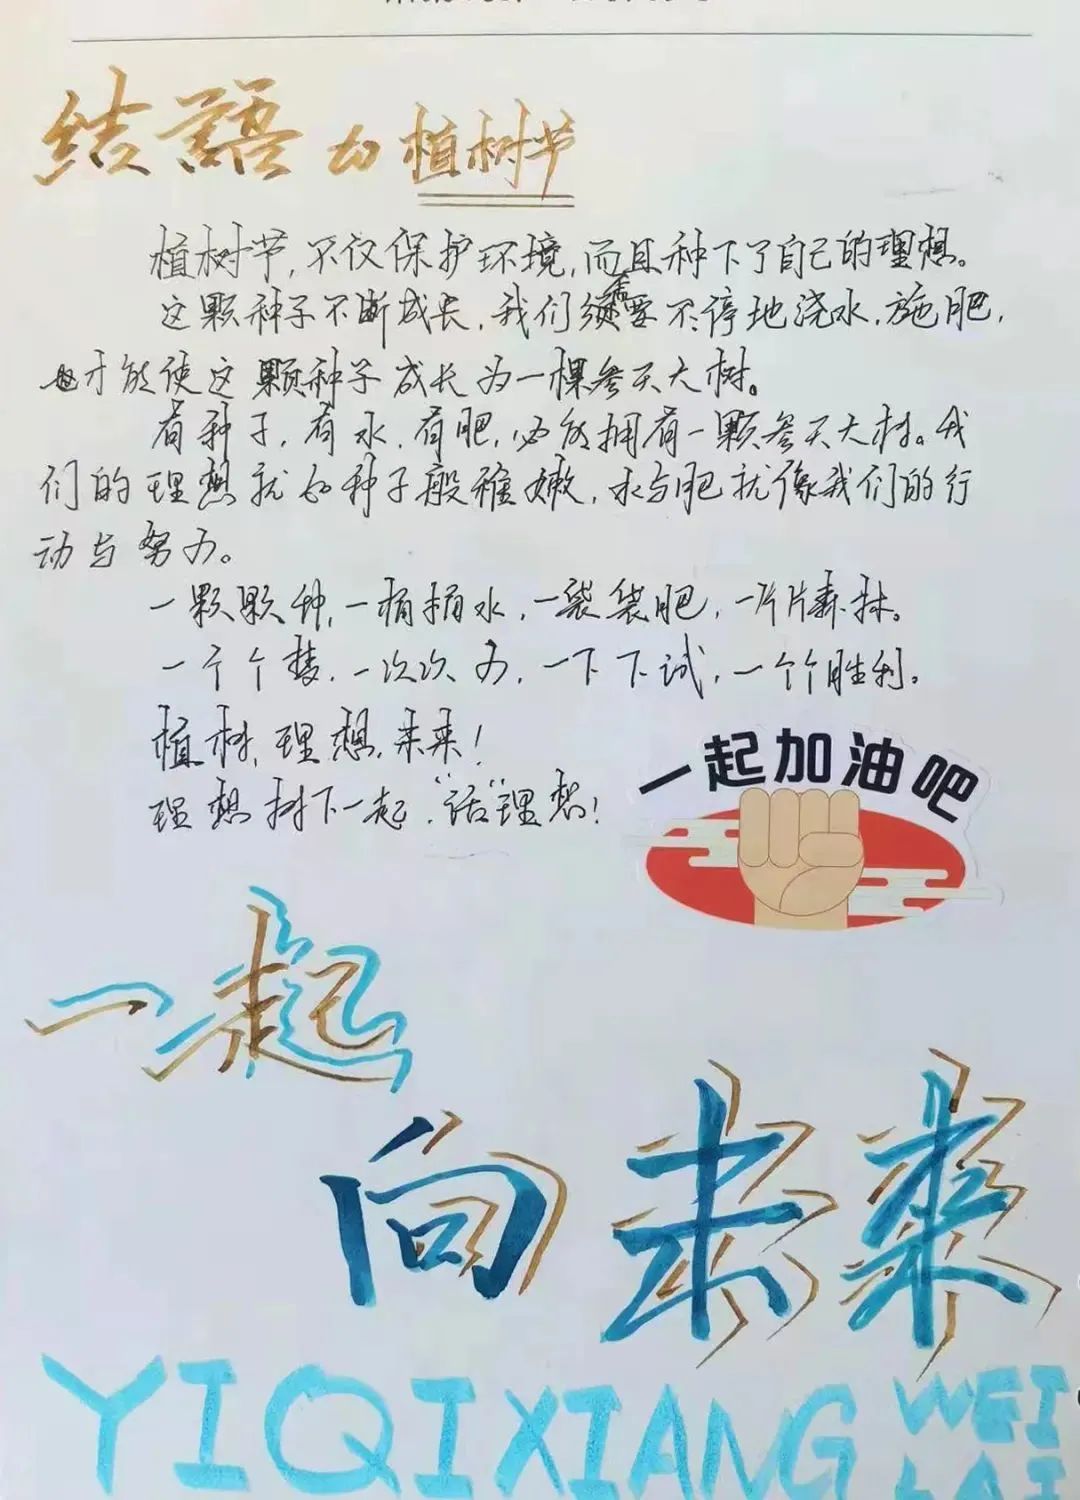 结語 的 植树节
植树节,不仅保护环境,而且种下了自己的理想。
这颗种子不断成长,我们须需要不停地浇水,施肥,
才能使这颗种子成长为一棵参天大树。
有种子,有水,有肥,必能拥有一颗参天大树。我
们的理想就如种子般稚嫩,水与肥就像我们的行
动与努力。
一颗颗种,一桶桶水,一袋袋肥,一片片森林。
一个个梦,一次次力,一下下试,一个个胜利。
植树,理想,未来!
理想树下一起,“话”理想!
一起加油吧
一起
向未来
YIQIXIANG WEI
LAI